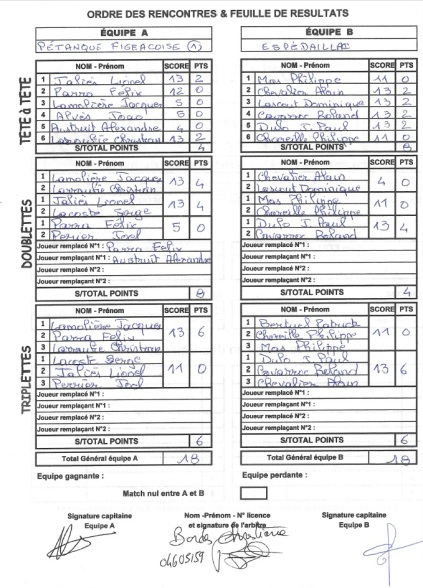 ORDRE DES RENCONTRES & FEUILLE DE RESULTATS
ÉQUIPE A
PÉTANQUE FIGEACOISE (1)
TÊTE À TÊTE
NOM - Prénom SCORE PTS
1 Jalies Lionel 13 2
2 Parra Félix 12 0
3 Lamolière Jacques 5 0
4 Alvès Joao 5 0
5 Austruit Alexandre 4 0
6 Christian 13 2
S/TOTAL POINTS 4
DOUBLETTES
NOM - Prénom SCORE PTS
1 Lamolière Jacques 13 4
2 Christian
1 Jalies Lionel 13 4
2 Lacoste Serge
1 Parra Félix 5 0
2 Perrier Joel
Joueur remplacé N°1 : Parra Felix
Joueur remplaçant N°1 : Austruit Alexandre
Joueur remplacé N°2 :
Joueur remplaçant N°2 :
S/TOTAL POINTS 8
TRIPLETTES
NOM - Prénom SCORE PTS
1 Lamolière Jacques 13 6
2 Parra Félix
3 Christian
1 Lacoste Serge 11 0
2 Jalies Lionel
3 Perrier Joel
Joueur remplacé N°1 :
Joueur remplaçant N°1 :
Joueur remplacé N°2 :
Joueur remplaçant N°2 :
S/TOTAL POINTS 6
Total Général équipe A 18
Equipe gagnante :
ÉQUIPE B
ESPÉDAILLAC
NOM - Prénom SCORE PTS
1 Mas Philippe 11 0
2 Chevalier Alain 13 2
3 Lascout Dominique 13 2
4 Roland 13 2
5 Dufo J. Paul 13 2
6 Philippe 11 0
S/TOTAL POINTS 8
NOM - Prénom SCORE PTS
1 Chevalier Alain 4 0
2 Lascout Dominique
1 Mas Philippe 11 0
2 Philippe
1 Dufo J. Paul 13 4
2 Roland
Joueur remplacé N°1 :
Joueur remplaçant N°1 :
Joueur remplacé N°2 :
Joueur remplaçant N°2 :
S/TOTAL POINTS 4
NOM - Prénom SCORE PTS
1 Patrick 11 0
2 Philippe
3 Mas Philippe
1 Dufo J. Paul 13 6
2 Roland
3 Chevalier Alain
Joueur remplacé N°1 :
Joueur remplaçant N°1 :
Joueur remplacé N°2 :
Joueur remplaçant N°2 :
S/TOTAL POINTS 6
Total Général équipe B 18
Equipe perdante :
Match nul entre A et B
Signature capitaine
Equipe A
Nom -Prénom - N° licence
et signature de l'arbitre
04605159
Signature capitaine
Equipe B